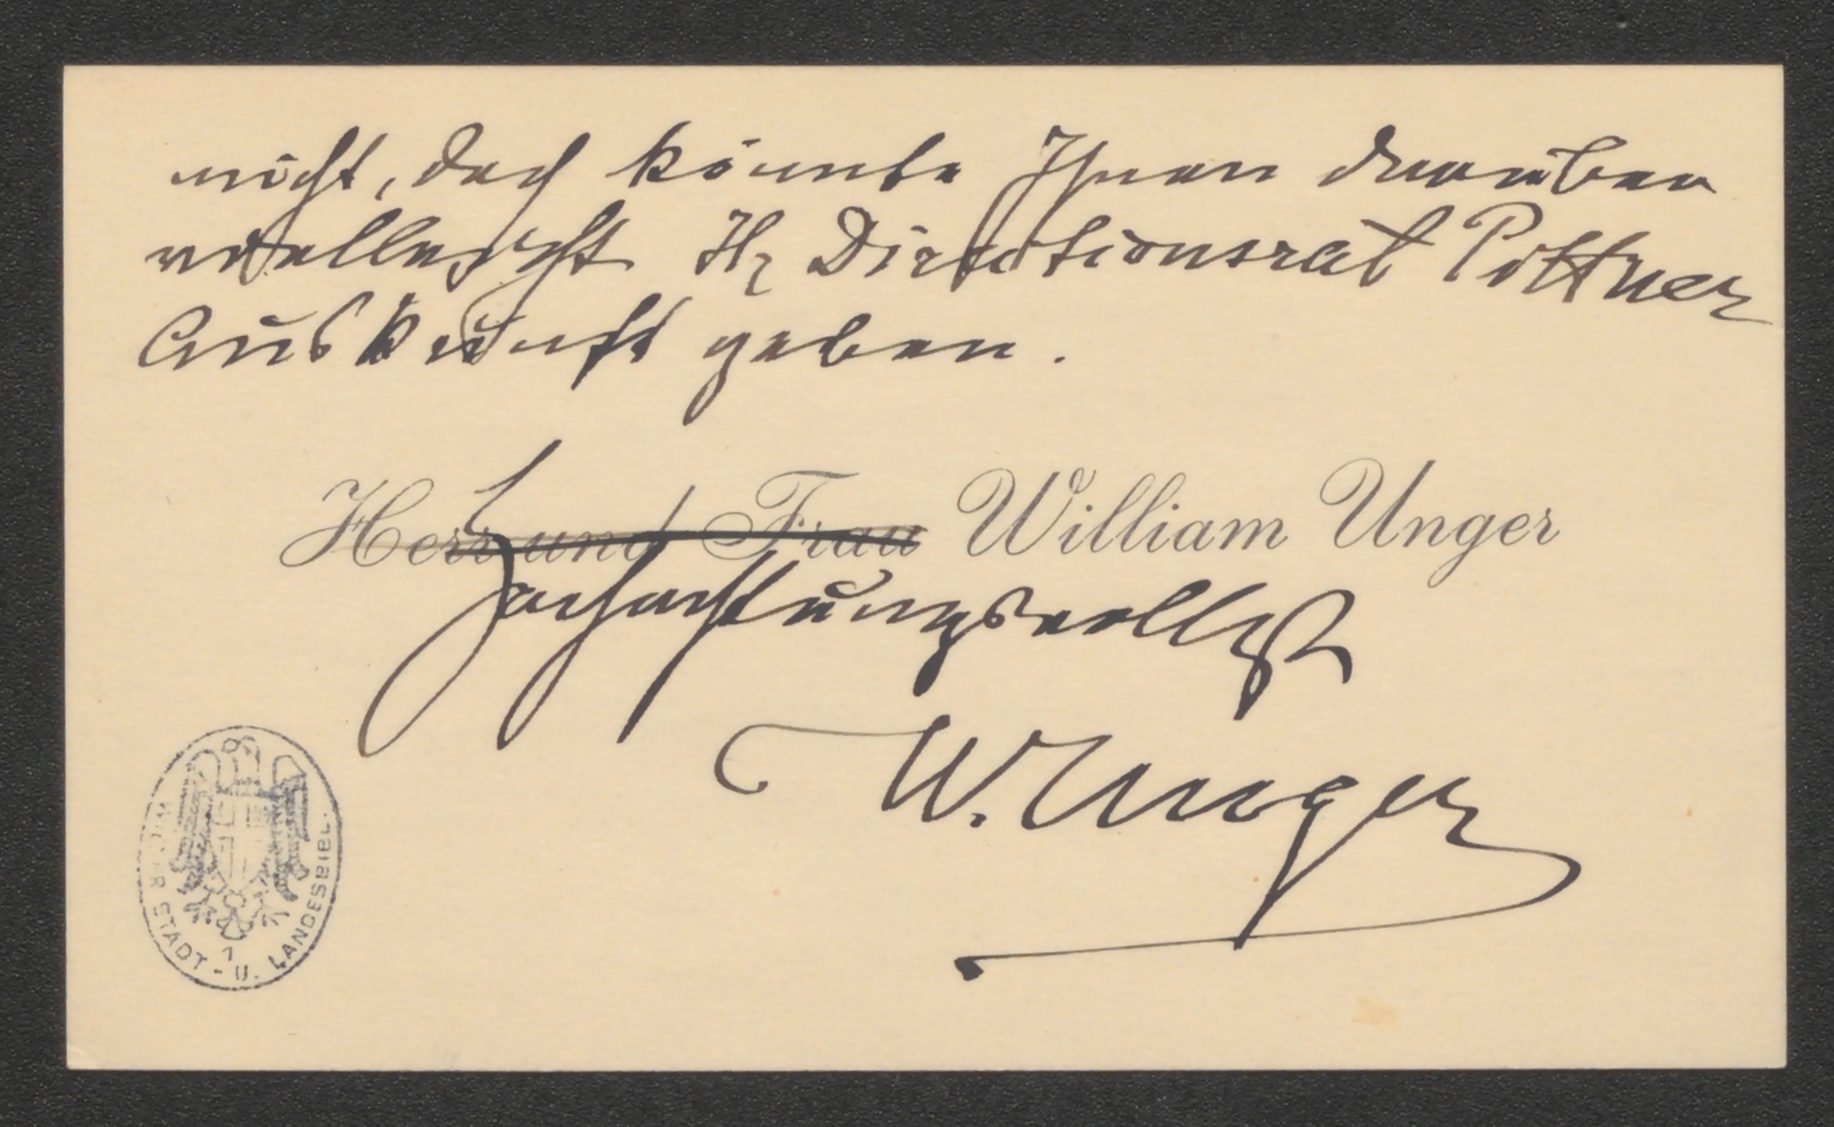 nicht, doch könnte Ihnen darüber
vielleicht Hr Directionsrat Pöttner
Auskunft geben.
Herr und Frau William Unger
Hochachtungsvollst
W. Unger
WIENER STADT - U. LANDESBIBL.